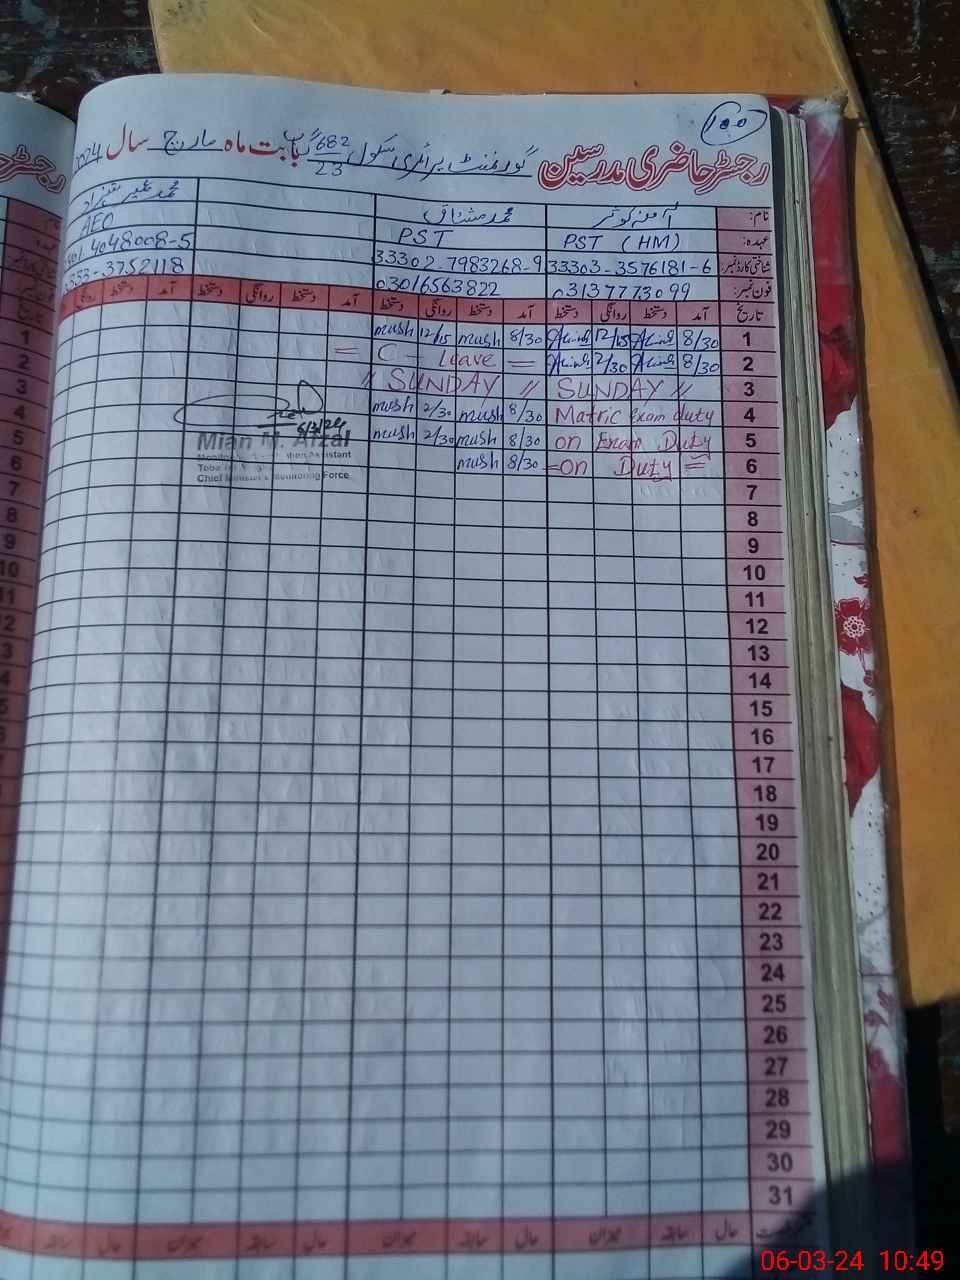 100
رجسٹر حاضری مدرسین گورنمنٹ پرائمری سکول 682/23 گ ب بابت ماہ مارچ سال 2024
نام: آمنہ کوثر محمد مشتاق
عہدہ: PST (HM) PST AEO
شناختی کارڈ نمبر: 33303-3576181-6 33302-7983268-9 4048008-5
فون نمبر: 03137773099 03016563822 0333-3752118
تاریخ آمد دستخط روانگی دستخط آمد دستخط روانگی دستخط آمد دستخط روانگی دستخط آمد دستخط روانگی
1 8/30 12/15 8/30 mush 12/15 mush
2 8/30 2/30 = C - Leave =
3 " SUNDAY " " SUNDAY "
4 Matric Exam duty 8/30 mush 2/30 mush
5 on Exam Duty 8/30 mush 2/30 mush
6 =on Duty= 8/30 mush
6/3/24
Mian M. Afzal
Assistant
Chief Minister's Monitoring Force
7
8
9
10
11
12
13
14
15
16
17
18
19
20
21
22
23
24
25
26
27
28
29
30
31
حال سابقہ میزان حال سابقہ میزان حال سابقہ میزان حال سابقہ
06-03-24 10:49